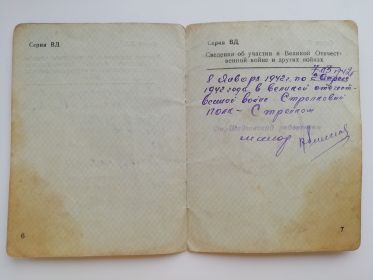 Серия ВД
6
Серия ВД
Сведения об участии в Великой Отечест-
венной войне и других войнах
8 Января 1942 г. по
1942 года в великой отечест-
венной войне. Стрелковый
полк – Стрелком
7